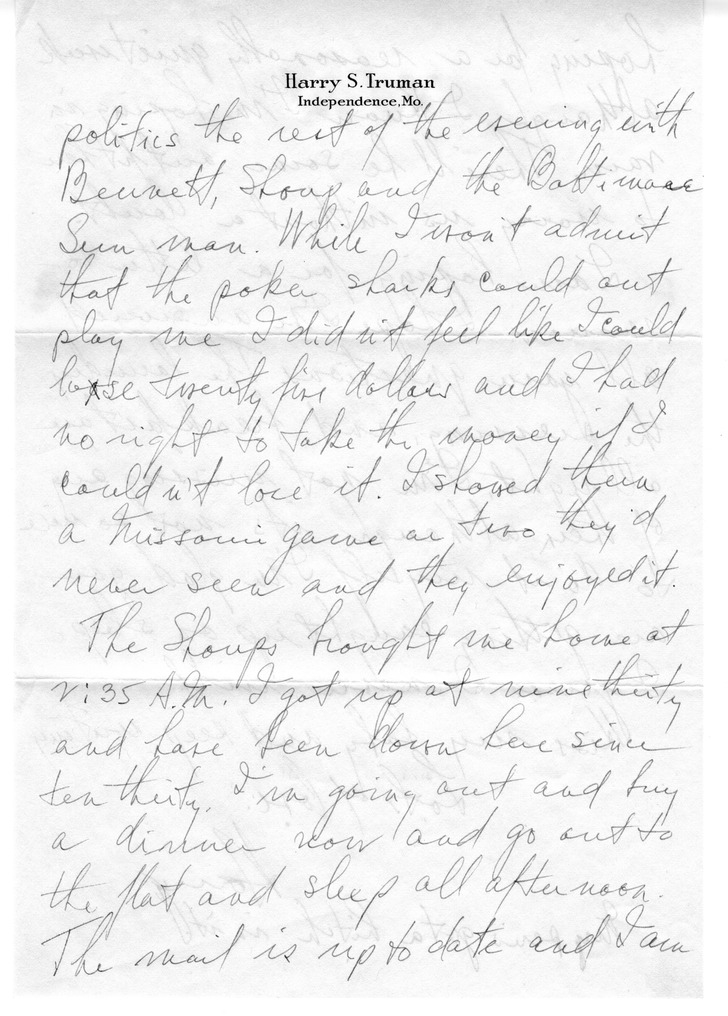 Harry S. Truman
Independence, Mo.
politics the rest of the evening with
Bennett, Shoup and the Baltimore
Sun man. While I won't admit
that the poker sharks could out
play me I didn't feel like I could
lose twenty five dollars and I had
no right to take the money if I
couldn't lose it. I showed them
a Missouri game or two they'd
never seen and they enjoyed it.
The Shoups brought me home at
2:35 A.M. I got up at nine thirty
and have been down here since
ten thirty. I'm going out and buy
a dinner now and go out to
the flat and sleep all afternoon.
The mail is up to date and I am